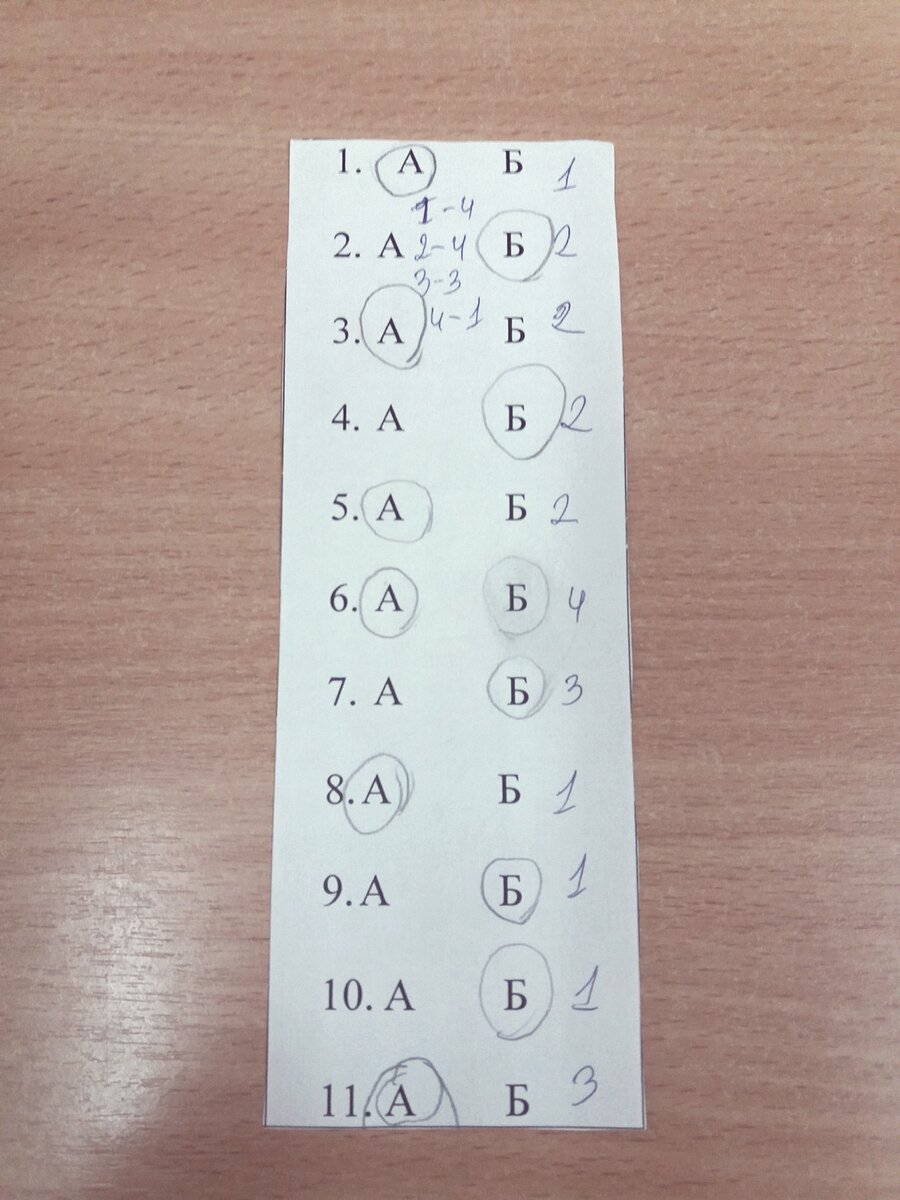 1. А Б 1
1-4
2. А 2-4 Б 2
3-3
4-1
3. А Б 2
4. А Б 2
5. А Б 2
6. А Б 4
7. А Б 3
8. А Б 1
9. А Б 1
10. А Б 1
11. А Б 3